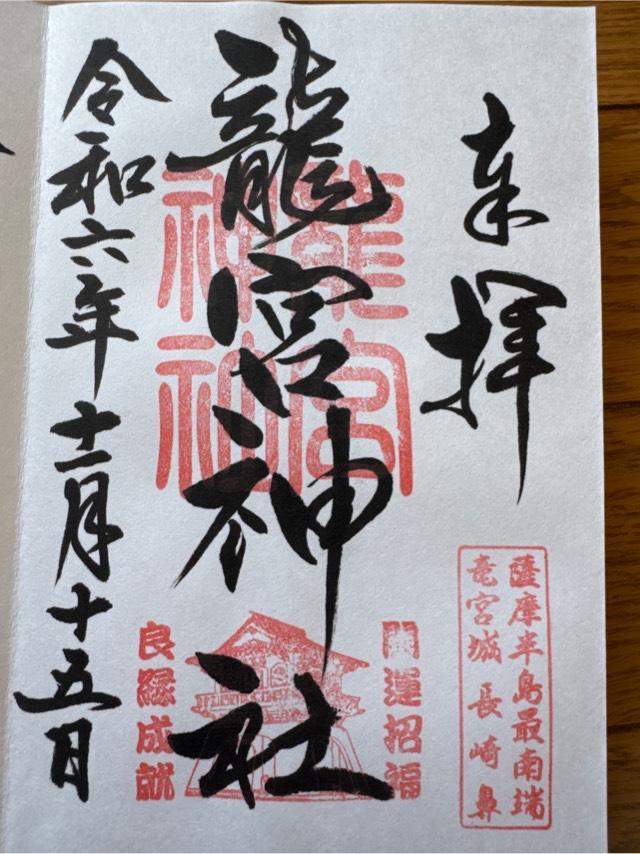 奉拝
薩摩半島最南端
竜宮城 長崎鼻
龍宮神社
龍宮
神社
開運招福
良縁成就
令和六年十一月十五日